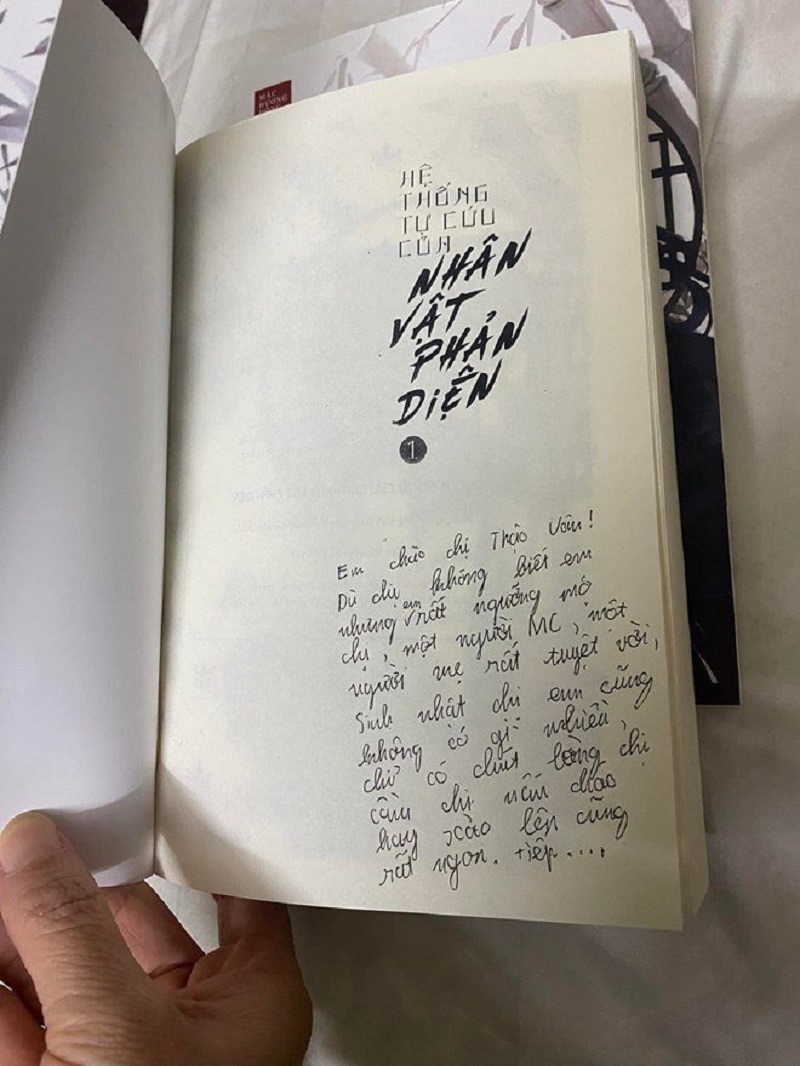 MẶC
HƯƠNG
HỆ
THỐNG
TỰ CỨU
CỦA
NHÂN
VẬT
PHẢN
DIỆN
1
Em chào chị Thảo Vân!
Dù chị không biết em
nhưng em rất ngưỡng mộ
chị, một người MC, một
người mẹ rất tuyệt vời,
Sinh nhật chị em cũng
không có gì nhiều,
chỉ có chút lòng chị
cầu chị nấu cháo
hay xào lên cũng
rất ngon. tiếp....